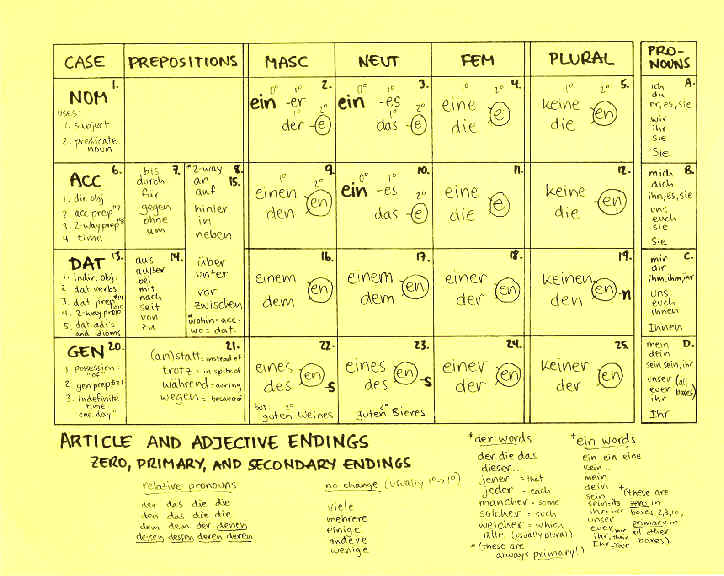 CASE PREPOSITIONS MASC NEUT FEM PLURAL PRO-NOUNS
NOM 1.
uses:
1. subject
2. predicate noun
2.
ein -er
der -e
1° 2°
3.
ein -es
das -e
4.
eine
die e
5.
keine
die en
A.
ich
du
er, es, sie
wir
ihr
sie
Sie
ACC 6.
1. dir. obj.
2. acc prep
3. 2-way prep
4. time
7.
bis
durch
für
gegen
ohne
um
8. 15.
"2-way
an
auf
hinter
in
neben
über
unter
vor
zwischen
"wohin = acc.
wo = dat.
9.
einen
den en
10.
ein -es
das -e
11.
eine
die e
12.
keine
die en
B.
mich
dich
ihn, es, sie
uns
euch
sie
Sie
DAT 13.
1. indir. obj.
2. dat verbs
3. dat prep
4. 2-way prep
5. dat adj's and idioms
14.
aus
außer
bei
mit
nach
seit
von
zu
16.
einem
dem en
17.
einem
dem en
18.
einer
der en
19.
keinen
den en -n
C.
mir
dir
ihm, ihm, ihr
uns
euch
ihnen
Ihnen
GEN 20.
1. possession "of"
2. gen prep
3. indefinite time "one day"
21.
(an)statt = instead of
trotz = in spite of
während = during
wegen = because of
22.
eines
des en -s
guten Weines
23.
eines
des en -s
guten Bieres
24.
einer
der en
25.
keiner
der en
D.
mein
dein
sein, sein, ihr
unser (all boxes)
euer
ihr
Ihr
ARTICLE AND ADJECTIVE ENDINGS
ZERO, PRIMARY, AND SECONDARY ENDINGS
relative pronouns
der das die die
den das die die
dem dem der denen
dessen dessen deren deren
no change (usually 1°, 1°)
viele
mehrere
einige
andere
wenige
*der words
der die das
dieser..
jener = that
jeder = each
mancher = some
solcher = such
welcher = which
alle (usually plural)
*(these are always primary!)
*ein words
ein ein eine
kein..
mein
dein
sein
ihr
unser
euer
ihr, their
Ihr, your
*(these are zero in boxes 2, 3, 10, primary in all other boxes)